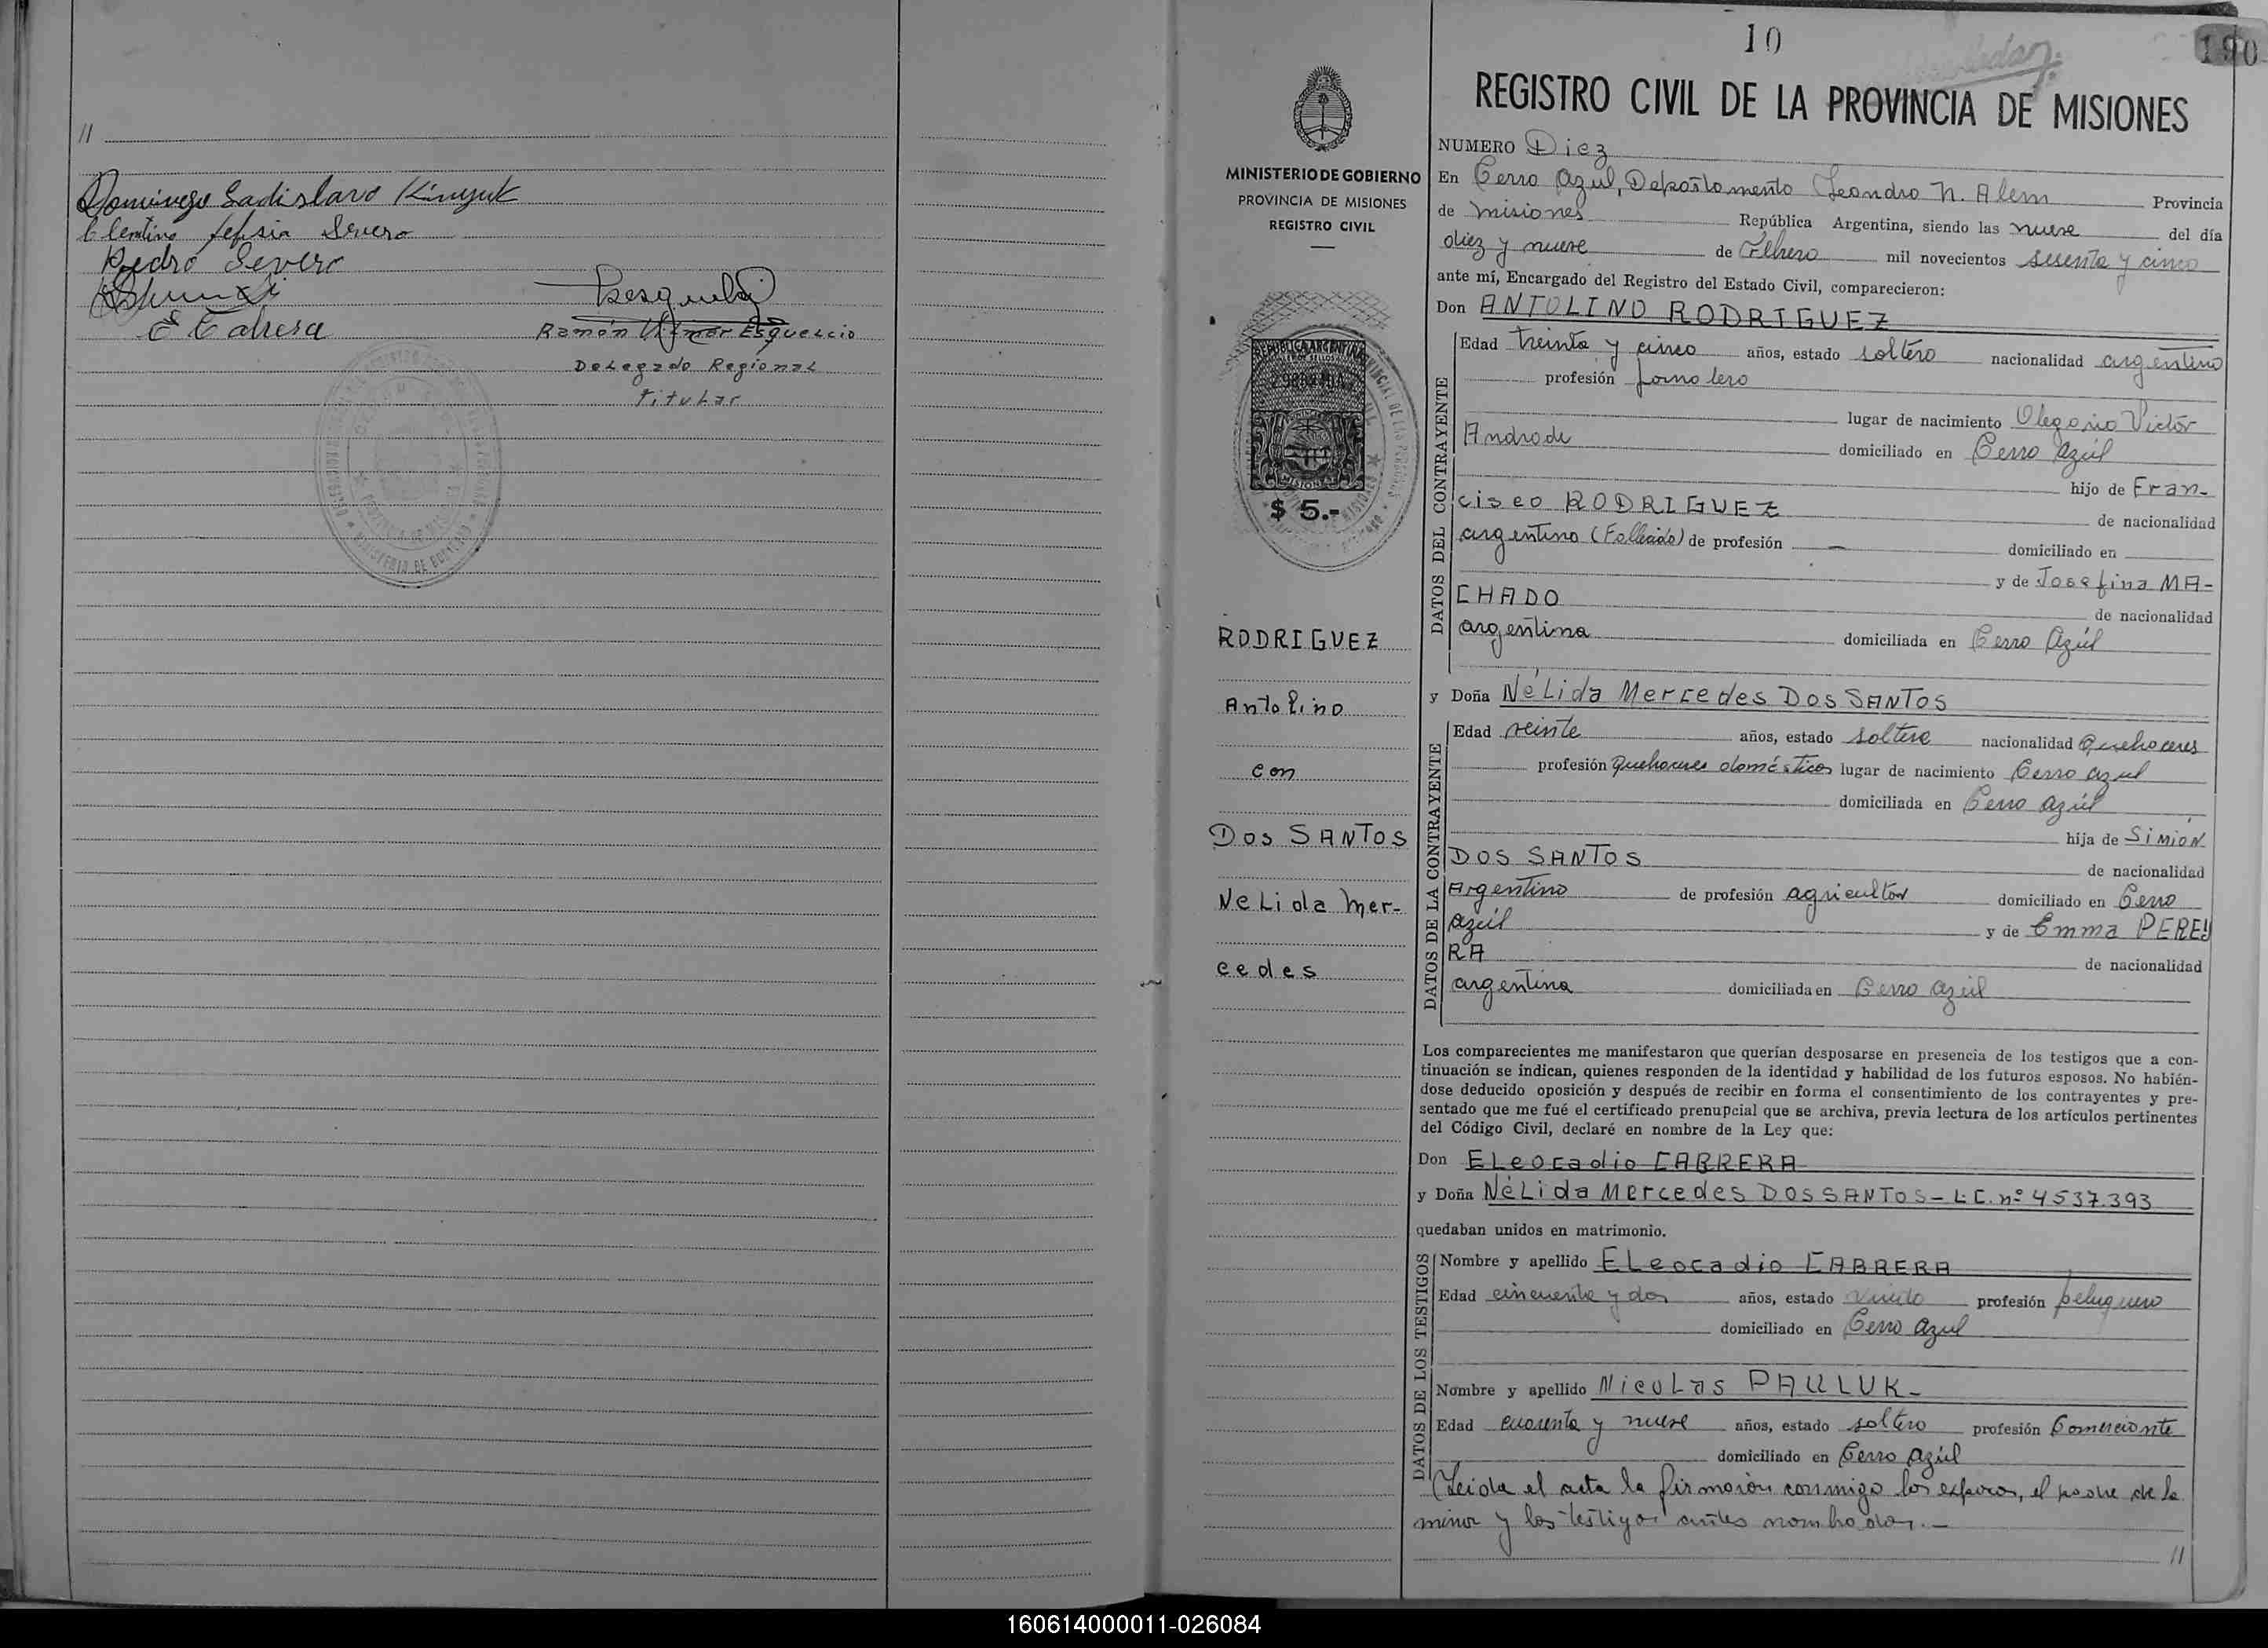 //
Domingo Ladislavo Kinyuk
Clentino Severo
Pedro Severo
E Cabrera
Ramón Esquercio
Delegado Regional
Titular
10
190
REGISTRO CIVIL DE LA PROVINCIA DE MISIONES
MINISTERIO DE GOBIERNO
PROVINCIA DE MISIONES
REGISTRO CIVIL
REPUBLICA ARGENTINA
MISIONES
$ 5.-
RODRIGUEZ
Antolino
con
Dos SANTOS
NeLida Mer-
cedes
NUMERO Diez
En Cerro Azul, Departamento Leandro N. Alem Provincia
de Misiones República Argentina, siendo las nueve del día
diez y nueve de Febrero mil novecientos sesenta y cinco
ante mí, Encargado del Registro del Estado Civil, comparecieron:
Don ANTOLINO RODRIGUEZ
DATOS DEL CONTRAYENTE
Edad treinta y cinco años, estado soltero nacionalidad argentino
profesión jornalero
lugar de nacimiento Olegario Victor
Andrade domiciliado en Cerro Azúl
hijo de Fran-
cisco RODRIGUEZ de nacionalidad
argentino (Fallecido) de profesión — domiciliado en
y de Josefina MA-
CHADO de nacionalidad
argentina domiciliada en Cerro Azúl
y Doña NéLida Mercedes DOS SANTOS
DATOS DE LA CONTRAYENTE
Edad veinte años, estado soltera nacionalidad Quehaceres
profesión Quehaceres domésticos lugar de nacimiento Cerro azul
domiciliada en Cerro azúl
hija de SIMION
DOS SANTOS de nacionalidad
Argentino de profesión agricultor domiciliado en Cerro
azúl y de Emma PEREY
RA de nacionalidad
argentina domiciliada en Cerro azúl
Los comparecientes me manifestaron que querían desposarse en presencia de los testigos que a con-
tinuación se indican, quienes responden de la identidad y habilidad de los futuros esposos. No habién-
dose deducido oposición y después de recibir en forma el consentimiento de los contrayentes y pre-
sentado que me fué el certificado prenupcial que se archiva, previa lectura de los artículos pertinentes
del Código Civil, declaré en nombre de la Ley que:
Don ELeocadio CABRERA
y Doña NéLida Mercedes DOS SANTOS - L.C. nº 4537.393
quedaban unidos en matrimonio.
DATOS DE LOS TESTIGOS
Nombre y apellido ELeocadio CABRERA
Edad cincuenta y dos años, estado viudo profesión peluquero
domiciliado en Cerro Azul
Nombre y apellido NicoLas PAULUK-
Edad cuarenta y nueve años, estado soltero profesión Comerciante
domiciliado en Cerro Azúl
Leida el acta la firmaron conmigo los esposos, el padre de la
menor y los testigos antes nombrados.-
//
160614000011-026084